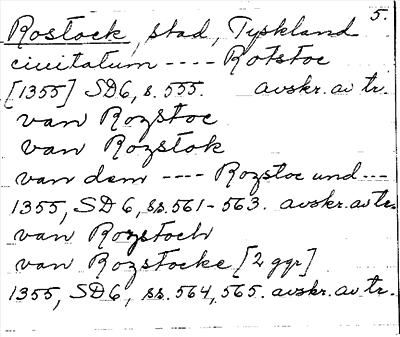 5.
Rostock, stad, Tyskland
ciuitatum ---- Rotstoc
[1355] SD6, s. 555. avskr. av tr.
van Rozstoc
van Rozstok
van dem ---- Rozstoc und ---
1355, SD6, ss. 561-563. avskr. av tr.
van Rozstoch
van Rozstocke [2 ggr]
1355, SD6, ss. 564, 565. avskr. av tr.